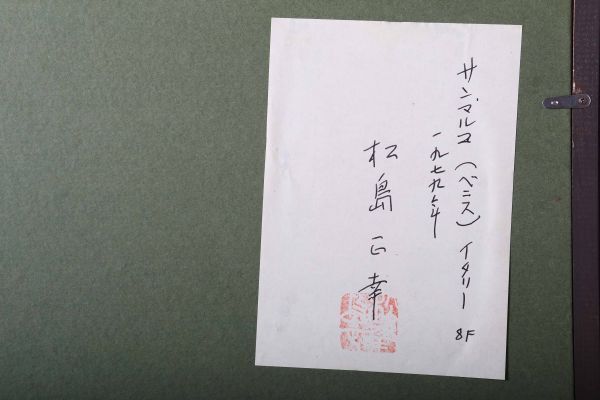 サン・マルコ（ベニス）イタリー 8F
一九七九年
松島正幸